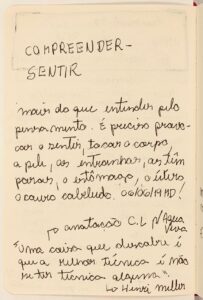 COMPREENDER-
SENTIR
mais do que entender pelo
pensamento. É preciso provo-
car o sentir, tocar o corpo,
a pele, as entranhas, as têm
poras, o estômago, o útero
o couro cabeludo. 06/06/19 HD!
anotação C.L p/ Água
Viva
"Uma coisa que descobri é
que a melhor técnica é não
se ter técnica alguma".
Henri Miller